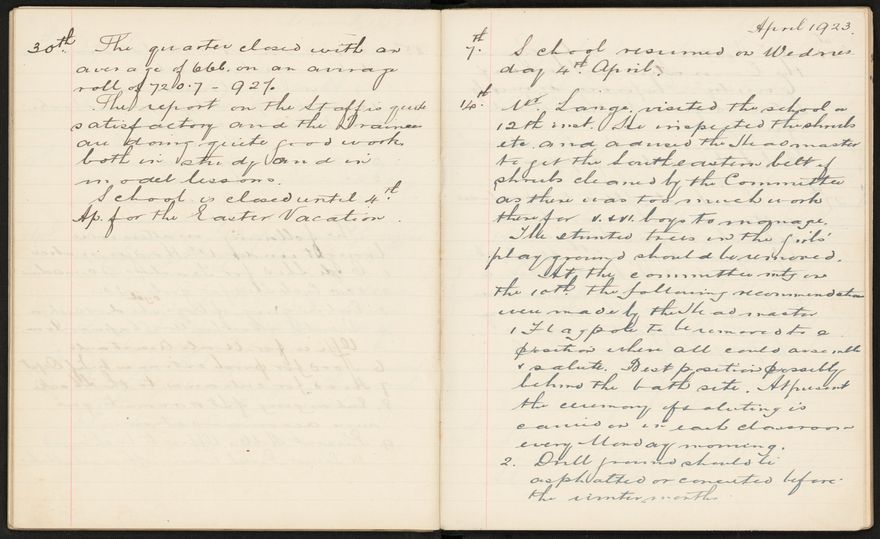 30th. The quarter closed with an
average of 666. on an average
roll of 720.7 - 92%
The report on the Staff is quite
satisfactory and the Trainees
are doing quite good work
both in study and in
model lessons.
School is closed until 4th
Ap. for the Easter Vacation.
April 1923.
7th. School resumed on Wednes
day 4th April.
14th. Mr. Lange visited the school on
12th inst. He inspected the shrubs
etc. and advised the Headmaster
to get the South eastern belt of
shrubs cleaned by the Committee
as there was too much work
there for V. & VI. boys to manage.
The stunted trees in the girls'
play ground should be removed.
At the committee mtg on
the 10th the following recommendations
were made by the Headmaster
1 Flagpole to be removed to a
position where all could assemble
& salute. Best position possibly
behind the bath site. At present
the ceremony of saluting is
carried on in each classroom
every Monday morning.
2. Drill ground should be
asphalted or concreted before
the winter months.